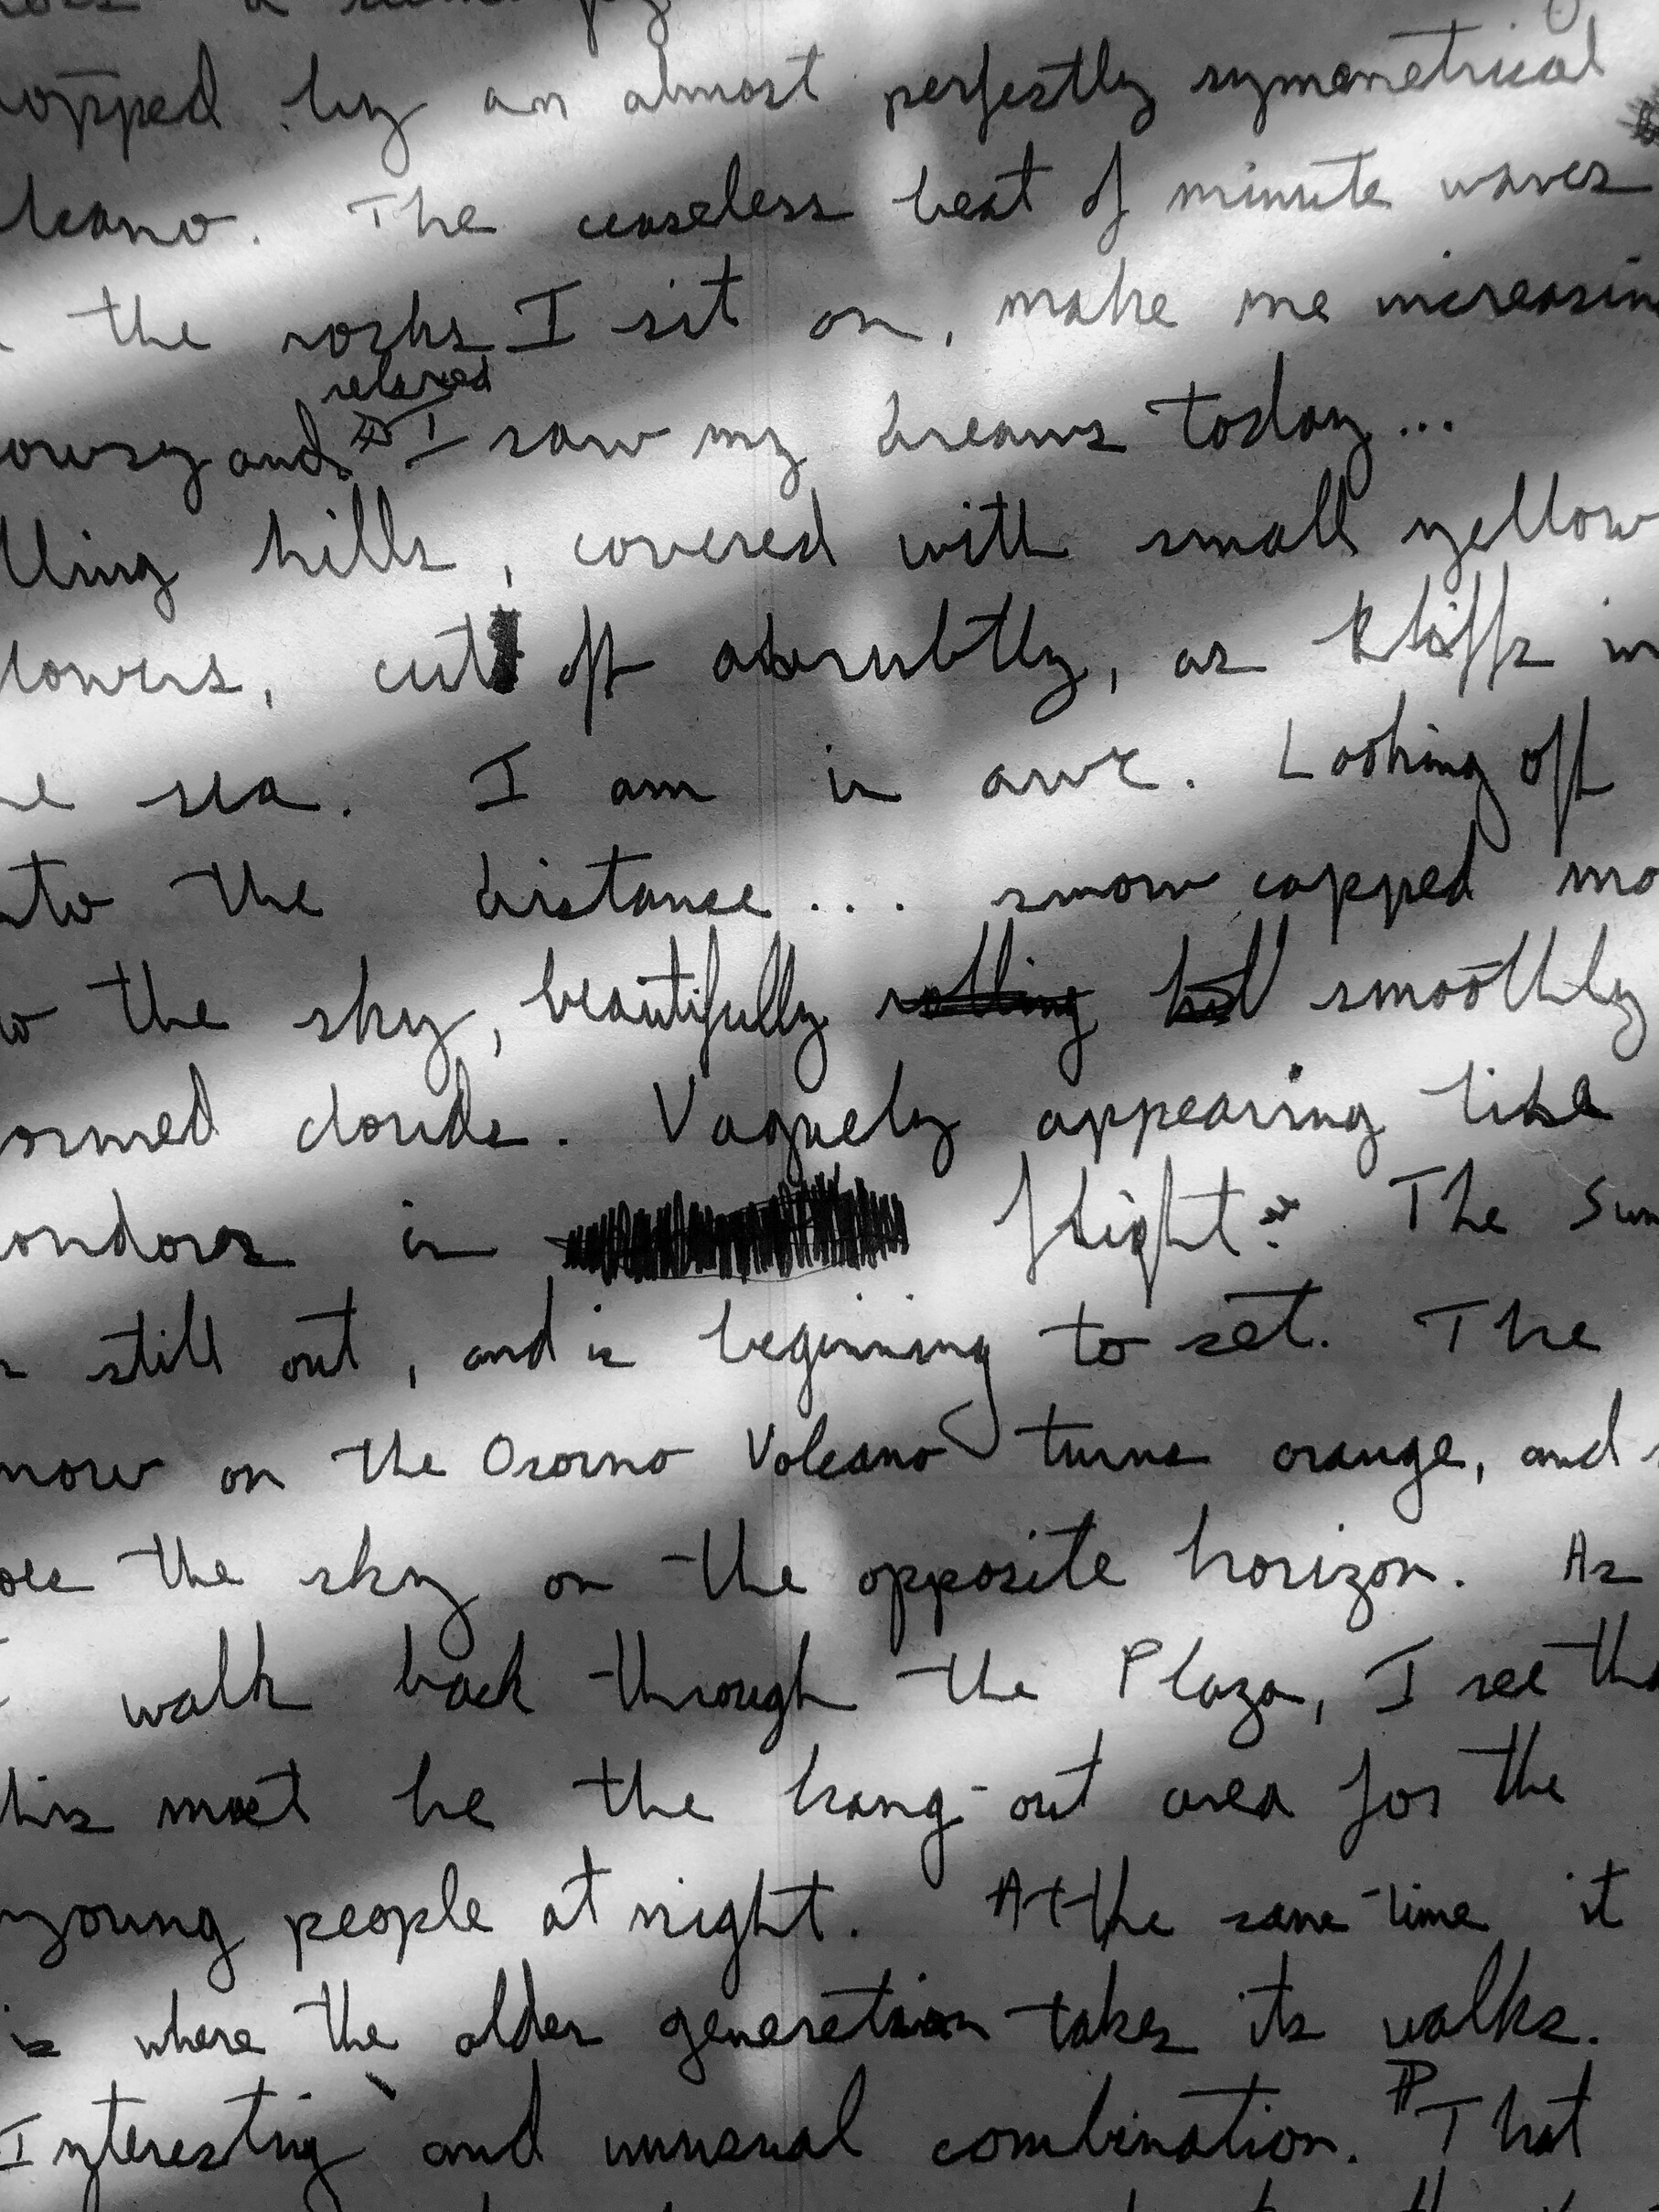 opped by an almost perfectly symmetrical
lcano. The ceaseless beat of minute waves
the rocks I sit on, make me increasin
relaxed
owsy and I saw my dreams today...
lling hills, covered with small yellow
lowers, cut off abrubtly, as kliffs in
e sea. I am in awe. Looking off
nto the distance... snow capped mo
o the sky, beautifully rolling hil smoothly
ormed clouds. Vaguely appearing like
ondors in flight. The Sun
s still out, and is beginning to set. The
now on the Osorno Volcano turns orange, and
oes the sky on the opposite horizon. As
I walk back through the Plaza, I see tha
his must be the hang-out area for the
young people at night. At the same time it
is where the older generation takes its walks.
Interesting and unusual combination. That